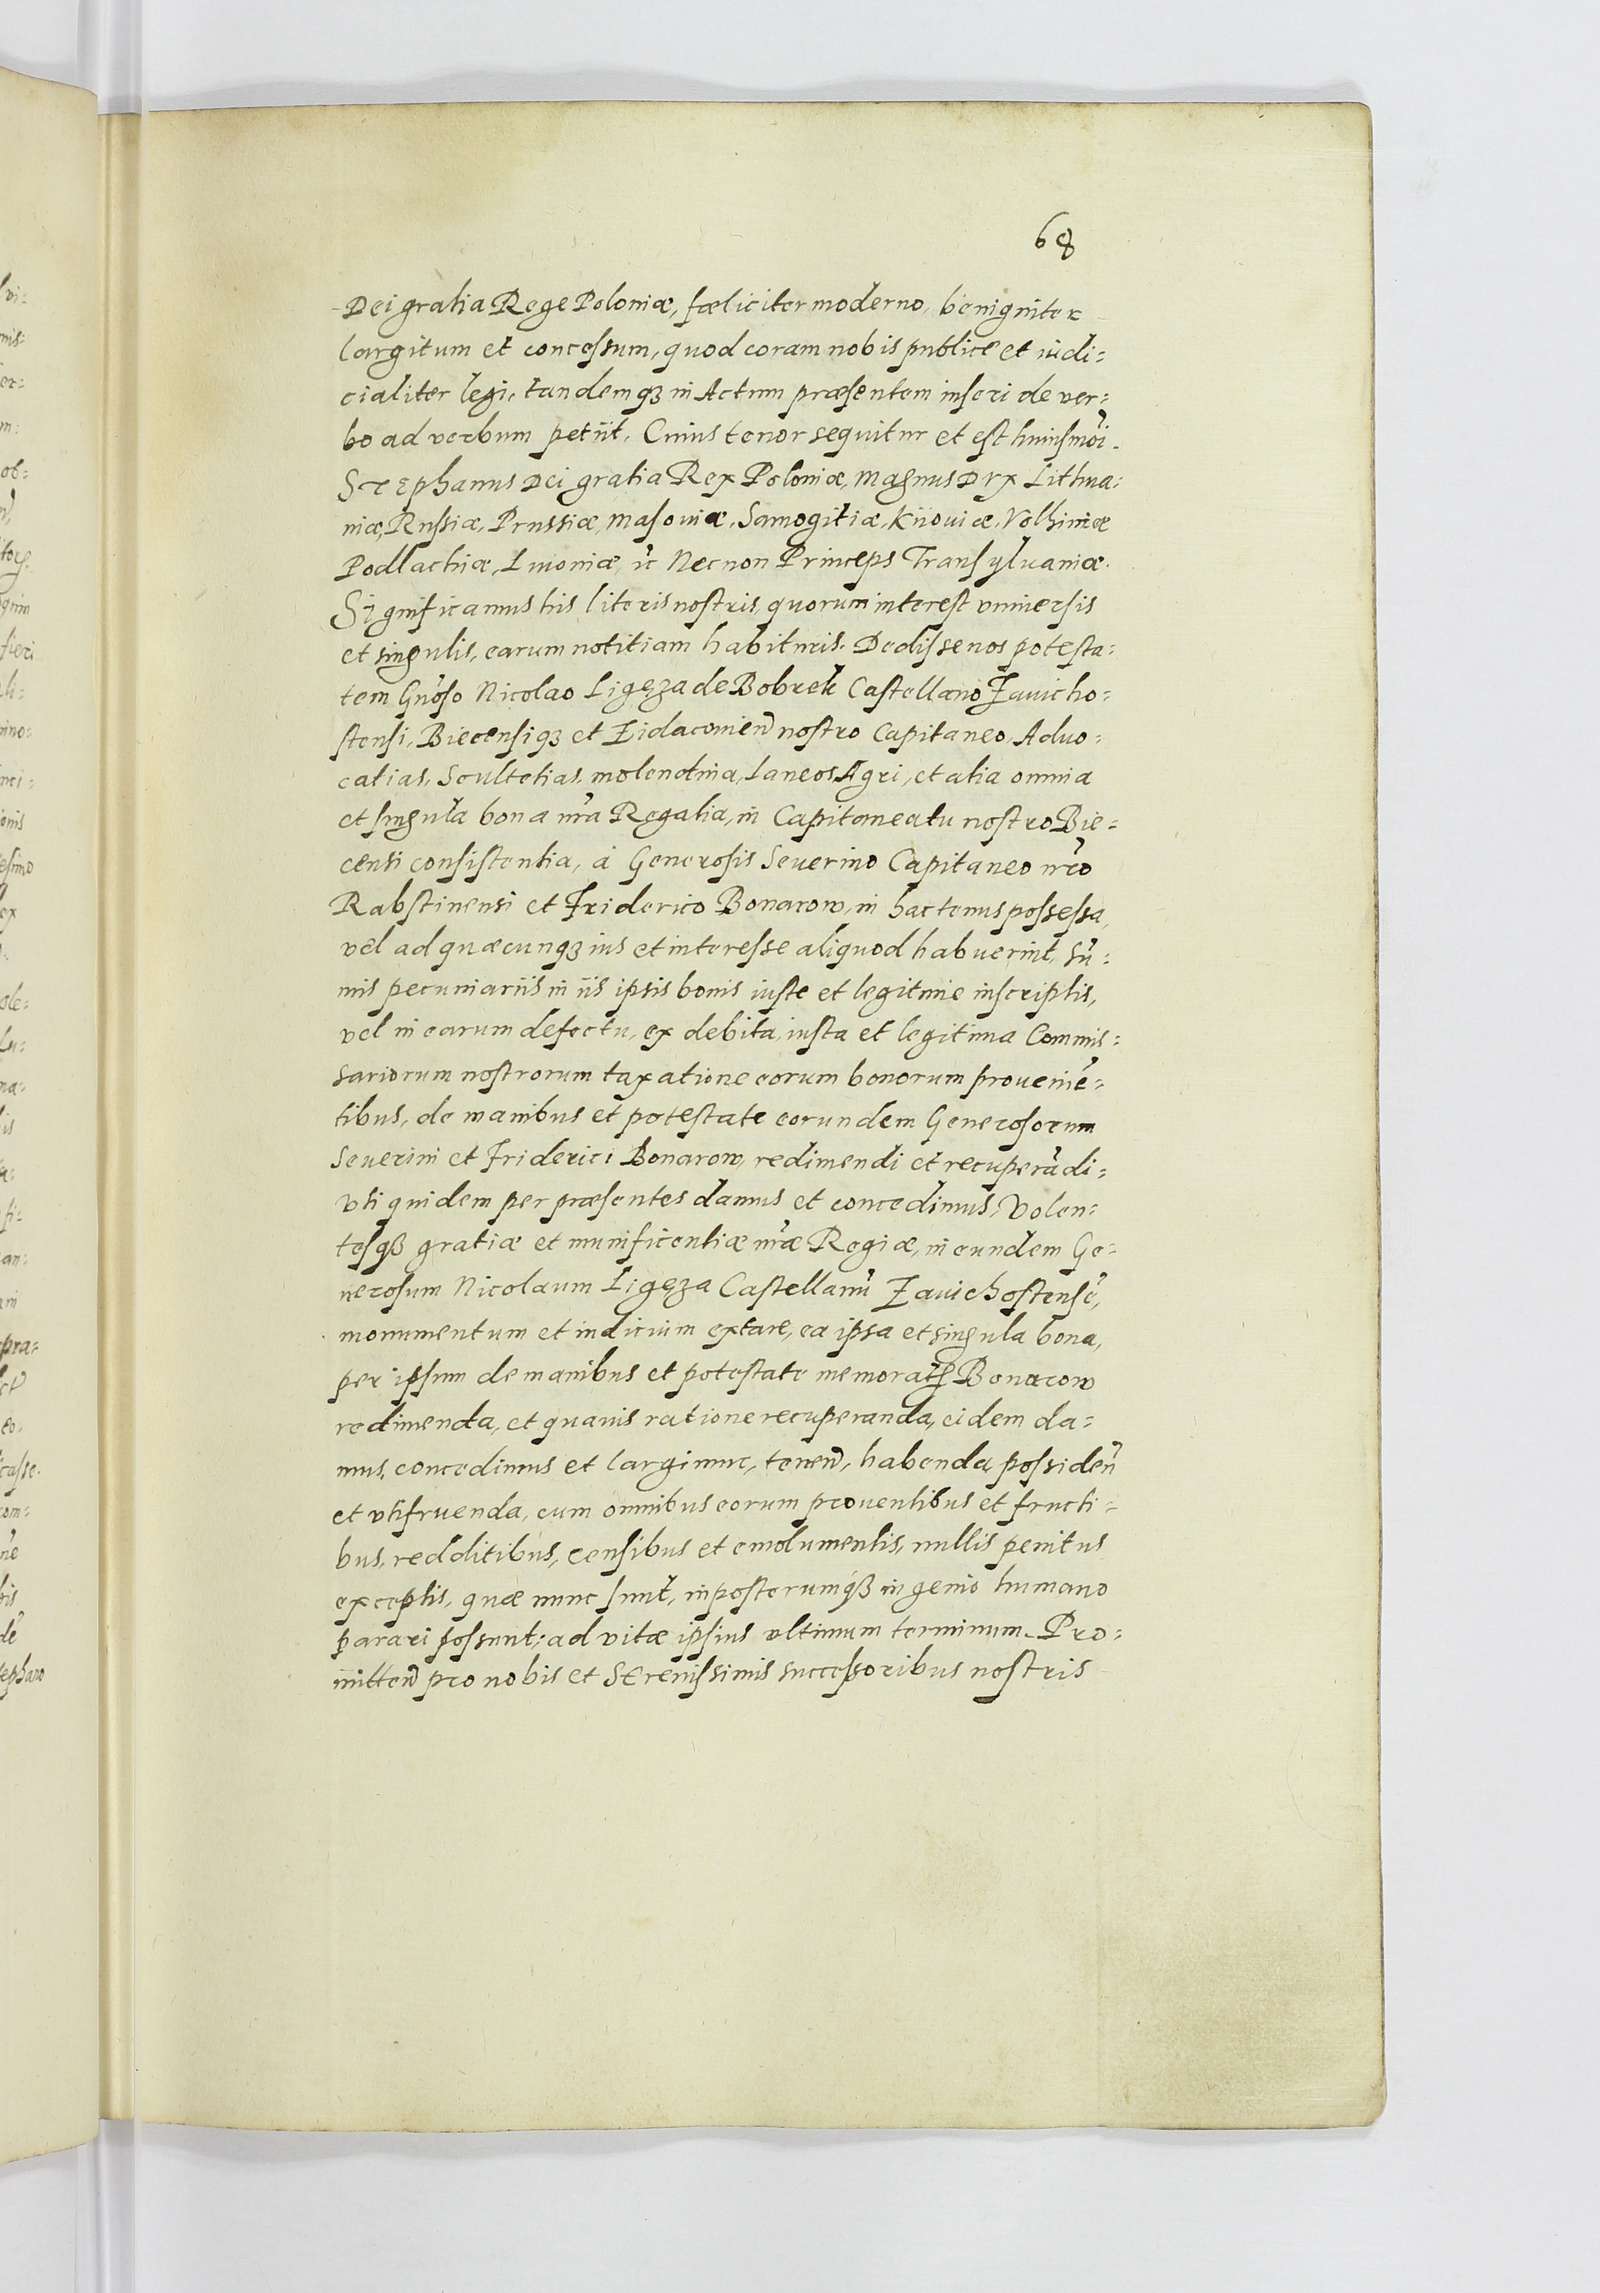 68
Dei gratia Rege Poloniæ, fœliciter moderno, benigniter
largitum et concessum, quod coram nobis publice et iudi=
cialiter legi, tandemqȝ in Actum præsentem inseri de ver=
bo ad verbum petiit. Cuius tenor sequitur et est huiusmōi.
Stephanus Dei gratia Rex Poloniæ, Magnus Dux Lithua=
niæ, Russiæ, Prussiæ, Masouiæ, Samogitiæ, Kiiouiæ, Volhiniæ
Podlachiæ, Liuoniæ, ic̃ Necnon Princeps Transyluaniæ.
Significamus his literis nostris, quorum interest vniuersis
et singulis, earum notitiam habituris. Dedisse nos potesta=
tem Gnõso Nicolao Ligęza de Bobrek Castellano Zauicho=
stensi, Biecensiqȝ et Zidacouień nostro Capitaneo, Aduo=
catias, Scultetias, molendina, Laneos Agri, et alia omnia
et singula bona nr̃a Regalia, in Capitaneatu nostro Bie=
censi consistentia, à Generosis Seuerino Capitaneo nr̃o
Rabstinensi et Friderico Bonarow, in hactenus possessa,
vel ad quæcunqȝ ius et interesse aliquod habuerint, sũ=
mis pecuniariis in iis ipsis bonis iuste et legitime inscriptis,
vel in earum defectu, ex debita, iusta et legitima Commis=
sariorum nostrorum taxatione eorum bonorum prouenie͂=
tibus, de manibus et potestate eorundem Generosorum
Seuerini et Friderici Bonarow, redimendi et recuperãdi=
Vti quidem per præsentes damus et concedimus, Volen=
tesqȝ gratiæ et munificentiæ nr̃æ Regiæ, in eundem Ge=
nerosum Nicolaum Ligęza Castellanũ Zauichostensẽ,
monumentum et indicium extare, ea ipsa et singula bona,
per ipsum de manibus et potestate memoratꝝ Bonarow
redimenda, et quauis ratione recuperanda, eidem da=
mus, concedimus et largimur, teneñ, habenda, possideñ
et vtifruenda, cum omnibus eorum prouentibus et fructi=
bus, redditibus, censibus et emolumentis, nullis penitus
exceptis, quæ nunc sunt, in posterumqȝ ingenio humano
parari possunt; ad vitæ ipsius vltimum terminum. Pro=
mitteñ pro nobis et Serenissimis successoribus nostris